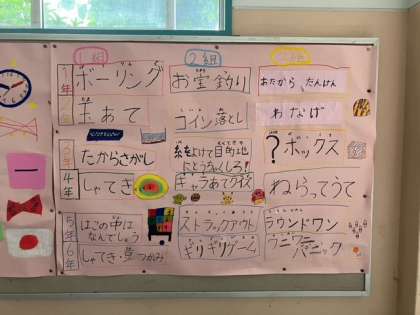 1組 2組 3組
1年 ボーリング お宝釣り おたから たんけん
2年 玉あて コイン落とし わなげ
3年 たからさがし 糸をよけて目的地にとうちゃくしろ! ?ボックス
4年 しゃてき キャラあてクイズ ねらってうて
5年 はこの中はなんでしょう ストラックアウト ラウンドワン
6年 しゃてき・宝つかみ ギリギリゲーム ワニワニパニック